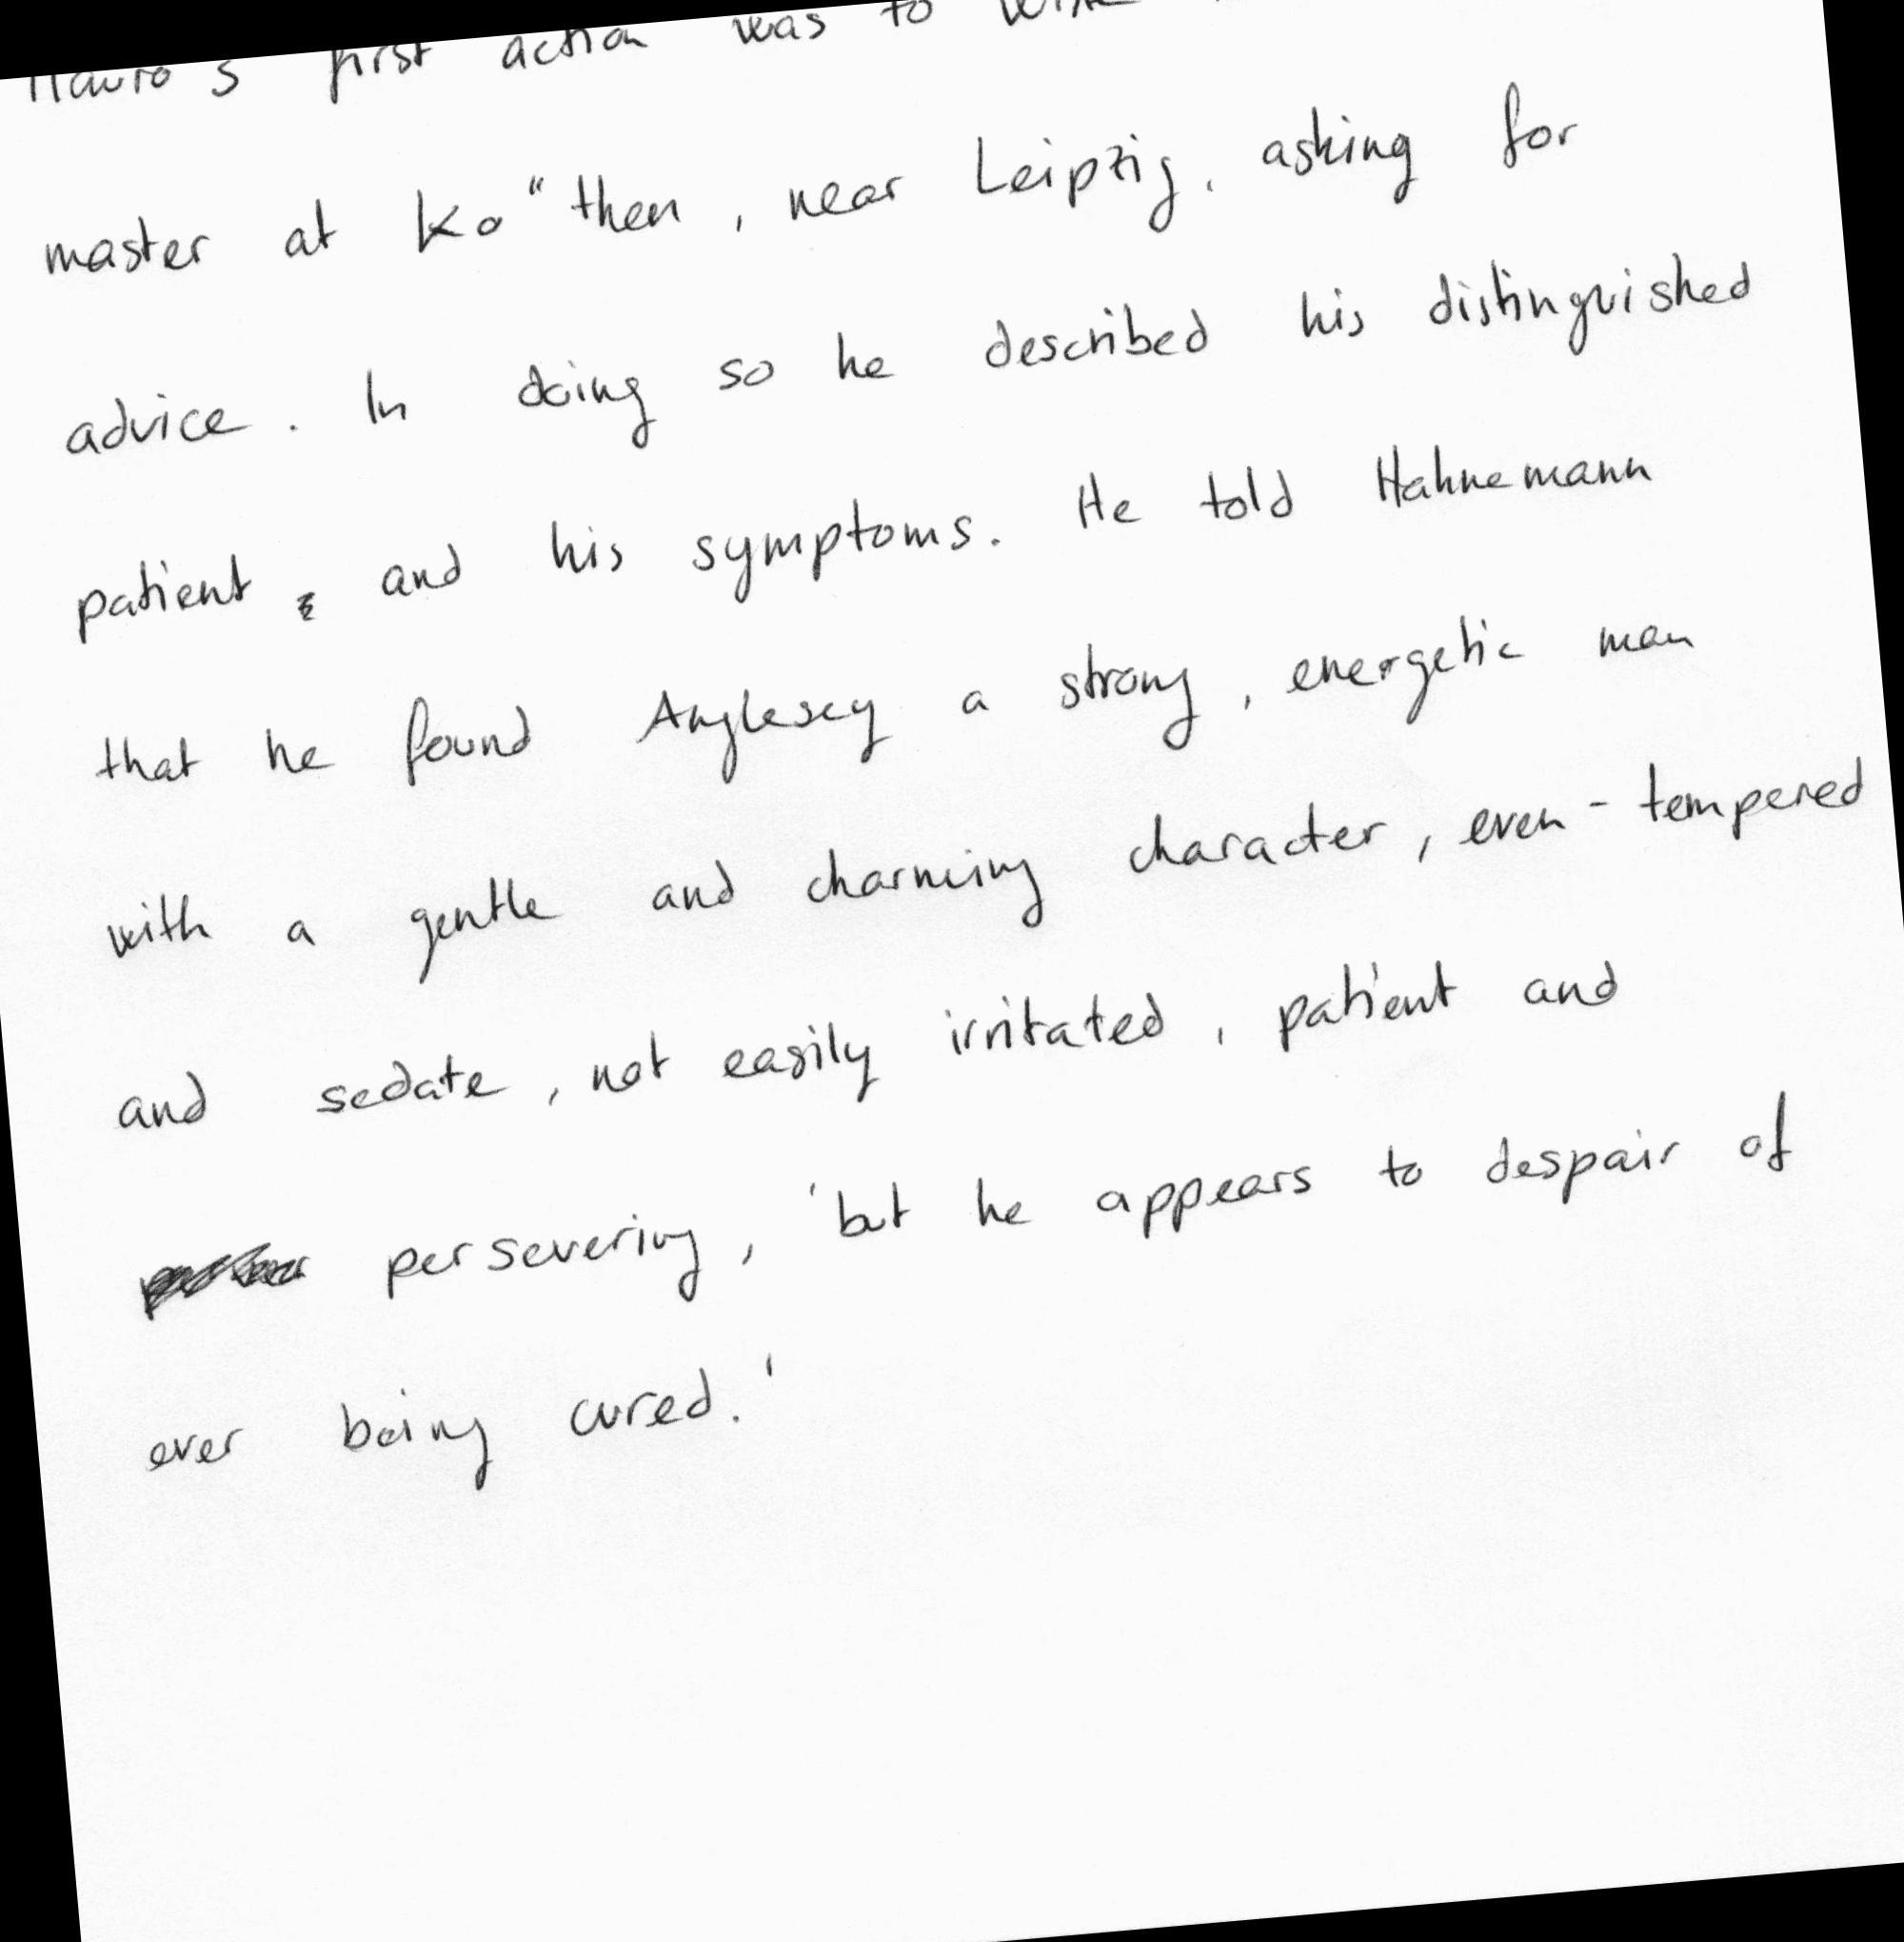 first action was to
master at Ko"then, near Leipzig, asking for
advice. In doing so he described his distinguished
patient, and his symptoms. He told Hahnemann
that he found Anglesey a strong, energetic man
with a gentle and charming character, even-tempered
and sedate, not easily irritated, patient and
persevering, 'but he appears to despair of
ever being cured.'